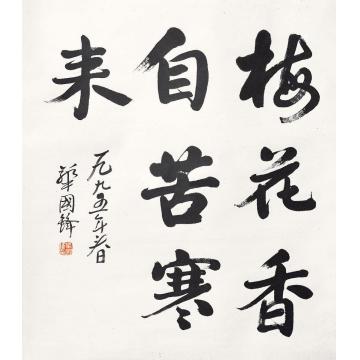 梅花香
自苦寒
来
一九九五年春
華國鋒